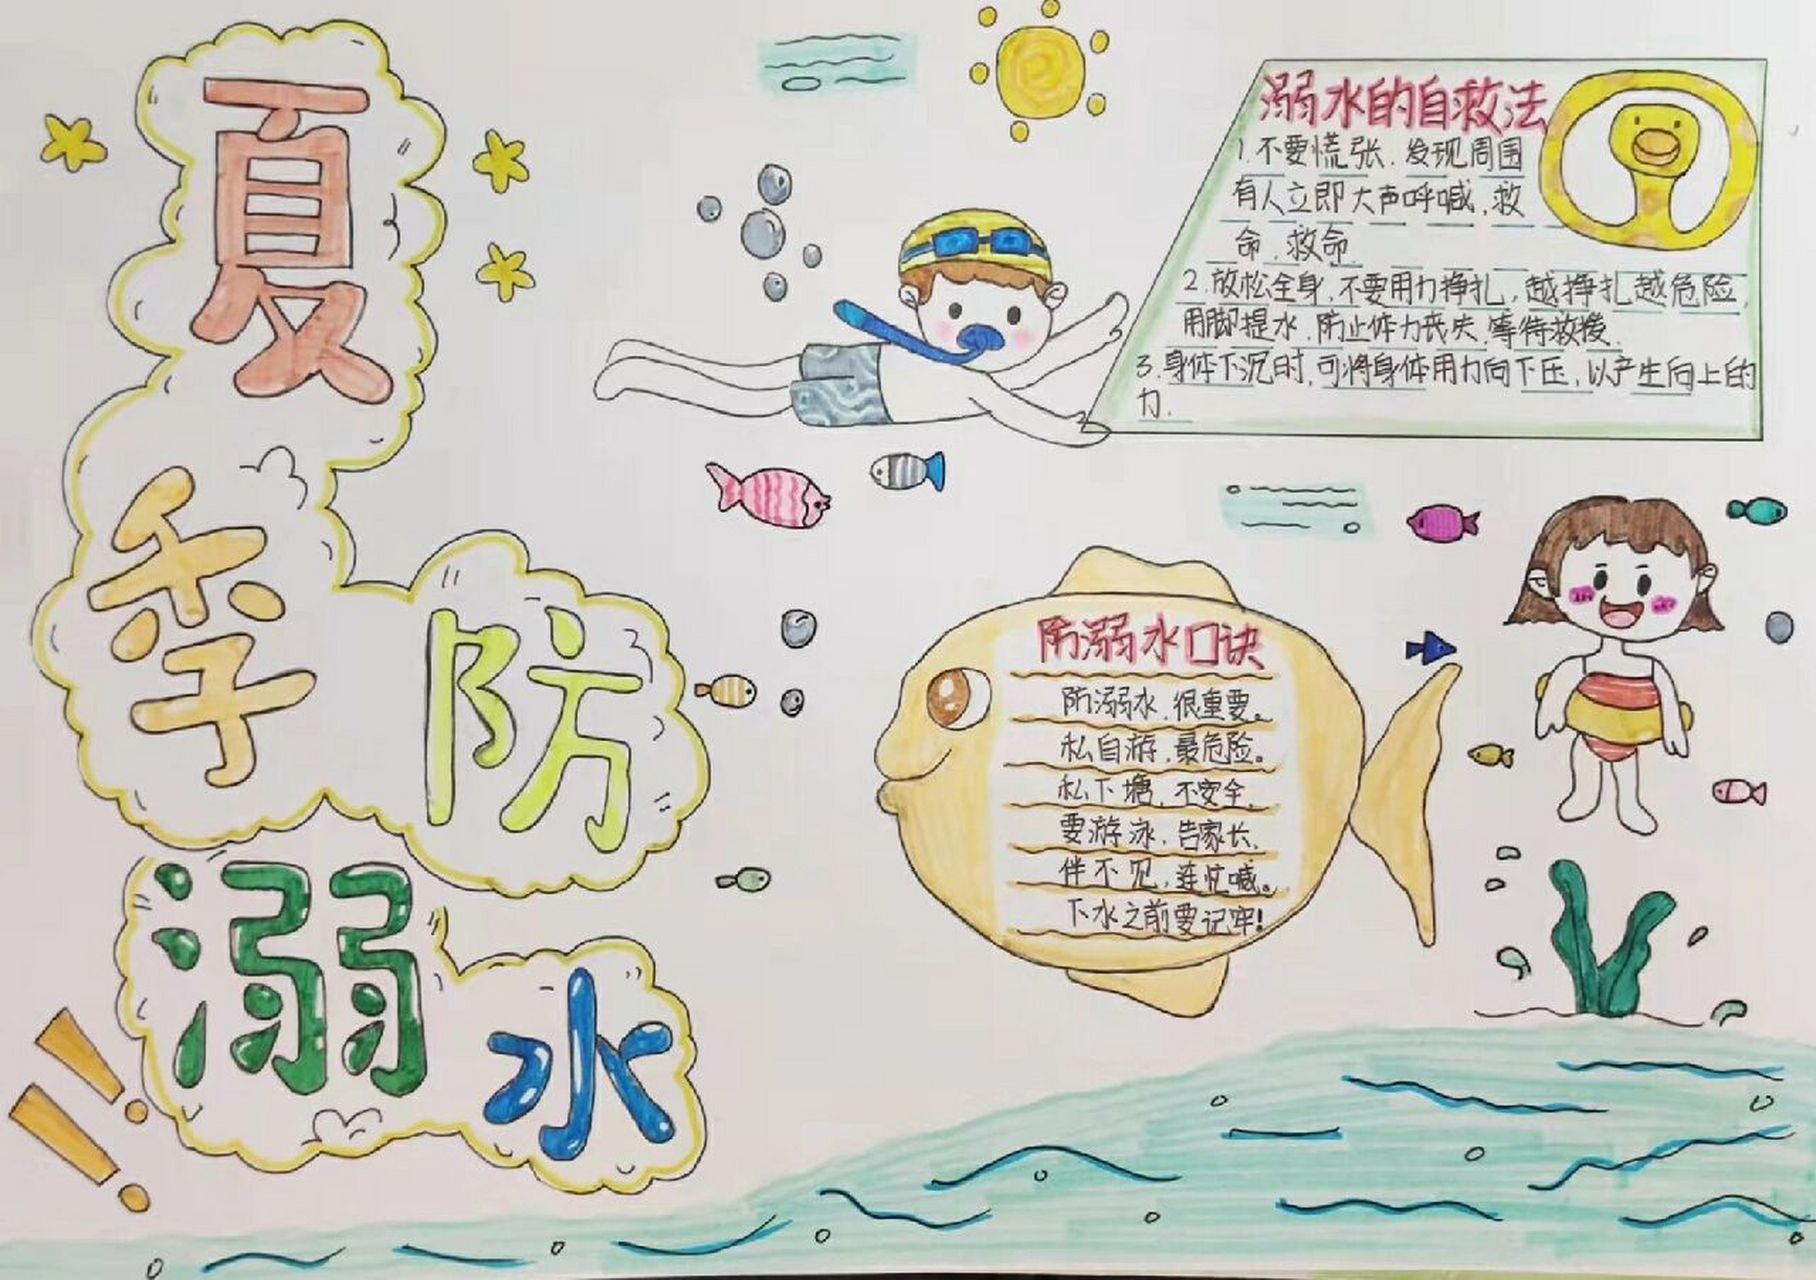 夏
季防
溺水
溺水的自救法
1.不要慌张.发现周围
有人立即大声呼喊,救
命,救命.
2.放松全身,不要用力挣扎,越挣扎越危险,
用脚提水,防止体力丧失,等待救援.
3.身体下沉时,可将身体用力向下压,以产生向上的
力.
防溺水口诀
防溺水,很重要。
私自游,最危险。
私下塘,不安全.
要游泳,告家长.
伴不见,连忙喊。
下水之前要记牢!